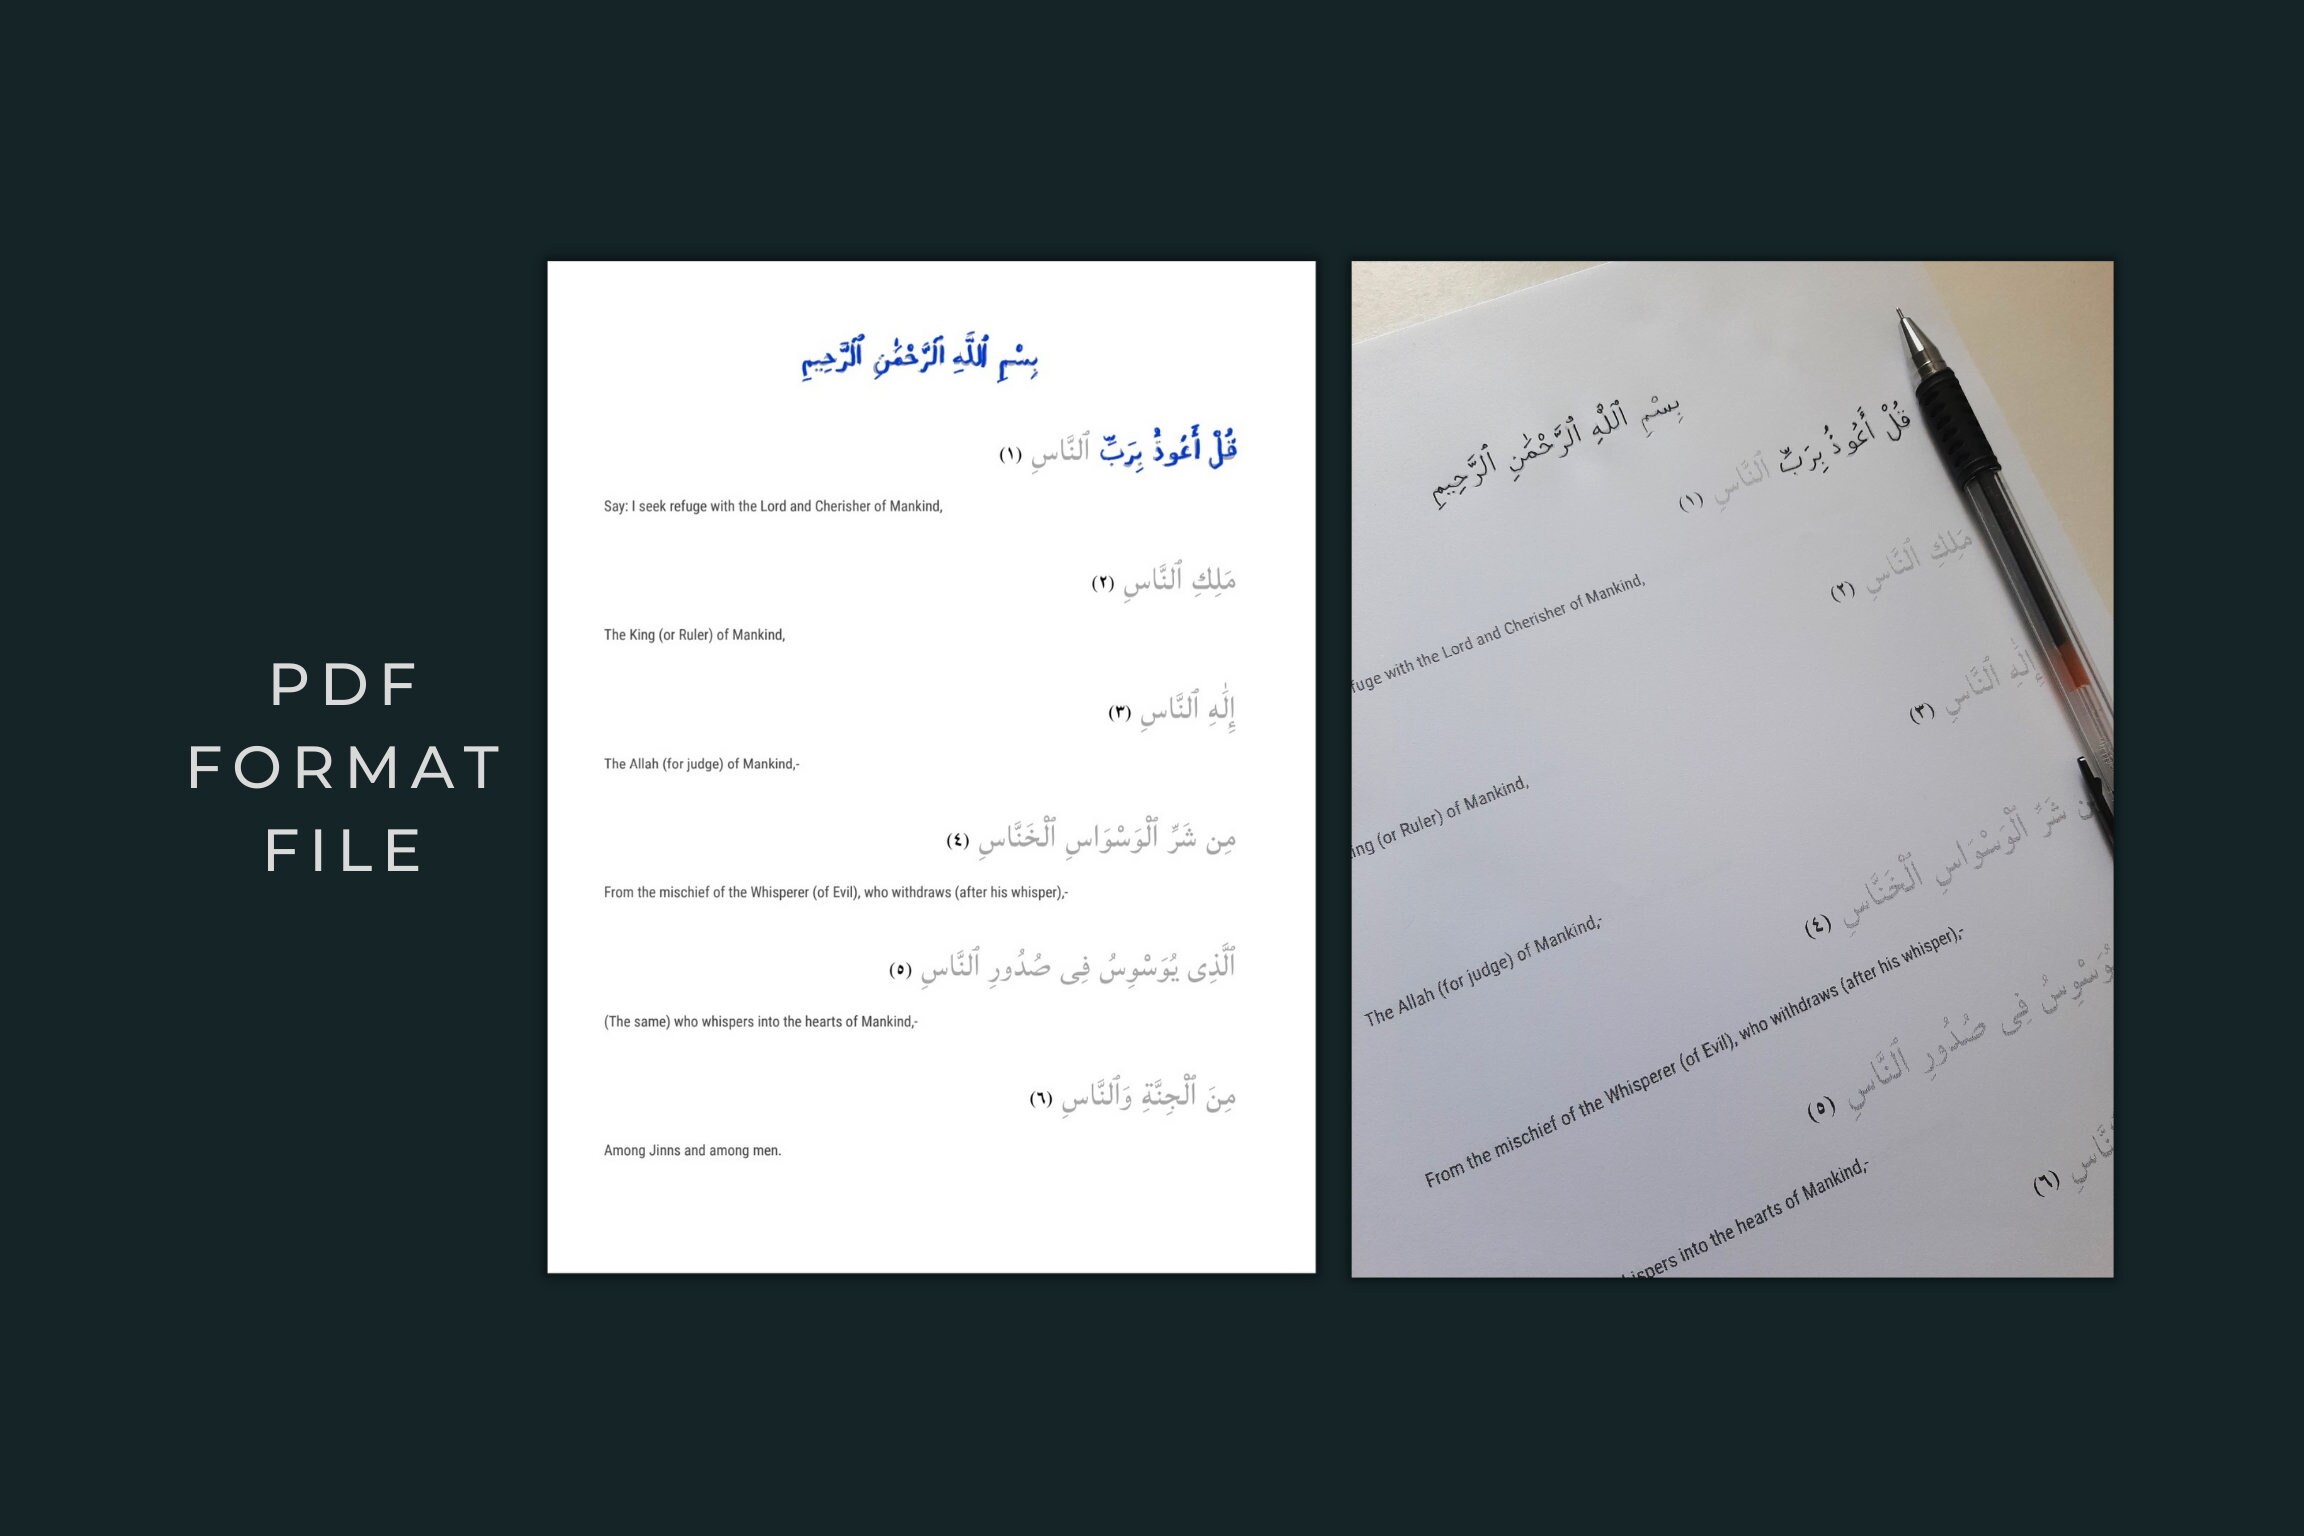 PDF
FORMAT
FILE
بِسْمِ ٱللَّهِ ٱلرَّحْمَٰنِ ٱلرَّحِيمِ
قُلْ أَعُوذُ بِرَبِّ ٱلنَّاسِ (١)
Say: I seek refuge with the Lord and Cherisher of Mankind,
مَلِكِ ٱلنَّاسِ (٢)
The King (or Ruler) of Mankind,
إِلَٰهِ ٱلنَّاسِ (٣)
The Allah (for judge) of Mankind,-
مِن شَرِّ ٱلْوَسْوَاسِ ٱلْخَنَّاسِ (٤)
From the mischief of the Whisperer (of Evil), who withdraws (after his whisper),-
ٱلَّذِى يُوَسْوِسُ فِى صُدُورِ ٱلنَّاسِ (٥)
(The same) who whispers into the hearts of Mankind,-
مِنَ ٱلْجِنَّةِ وَٱلنَّاسِ (٦)
Among Jinns and among men.
بِسْمِ ٱللَّهِ ٱلرَّحْمَٰنِ ٱلرَّحِيمِ
قُلْ أَعُوذُ بِرَبِّ ٱلنَّاسِ (١)
with the Lord and Cherisher of Mankind,
مَلِكِ ٱلنَّاسِ (٢)
(or Ruler) of Mankind,
إِلَٰهِ ٱلنَّاسِ (٣)
The Allah (for judge) of Mankind,-
شَرِّ ٱلْوَسْوَاسِ ٱلْخَنَّاسِ (٤)
From the mischief of the Whisperer (of Evil), who withdraws (after his whisper),-
فِى صُدُورِ ٱلنَّاسِ (٥)
into the hearts of Mankind,-
(٦)